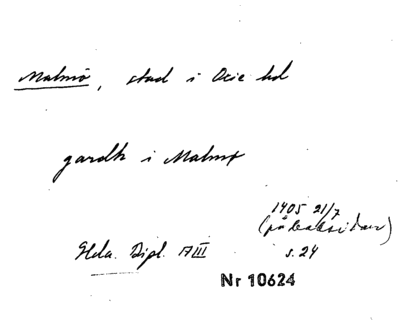 Malmö, stad i Oxie hd
gardh i Malmø
1405 21/7
(på baksidan)
Hela. Dipl. 17 III s. 24
Nr 10624